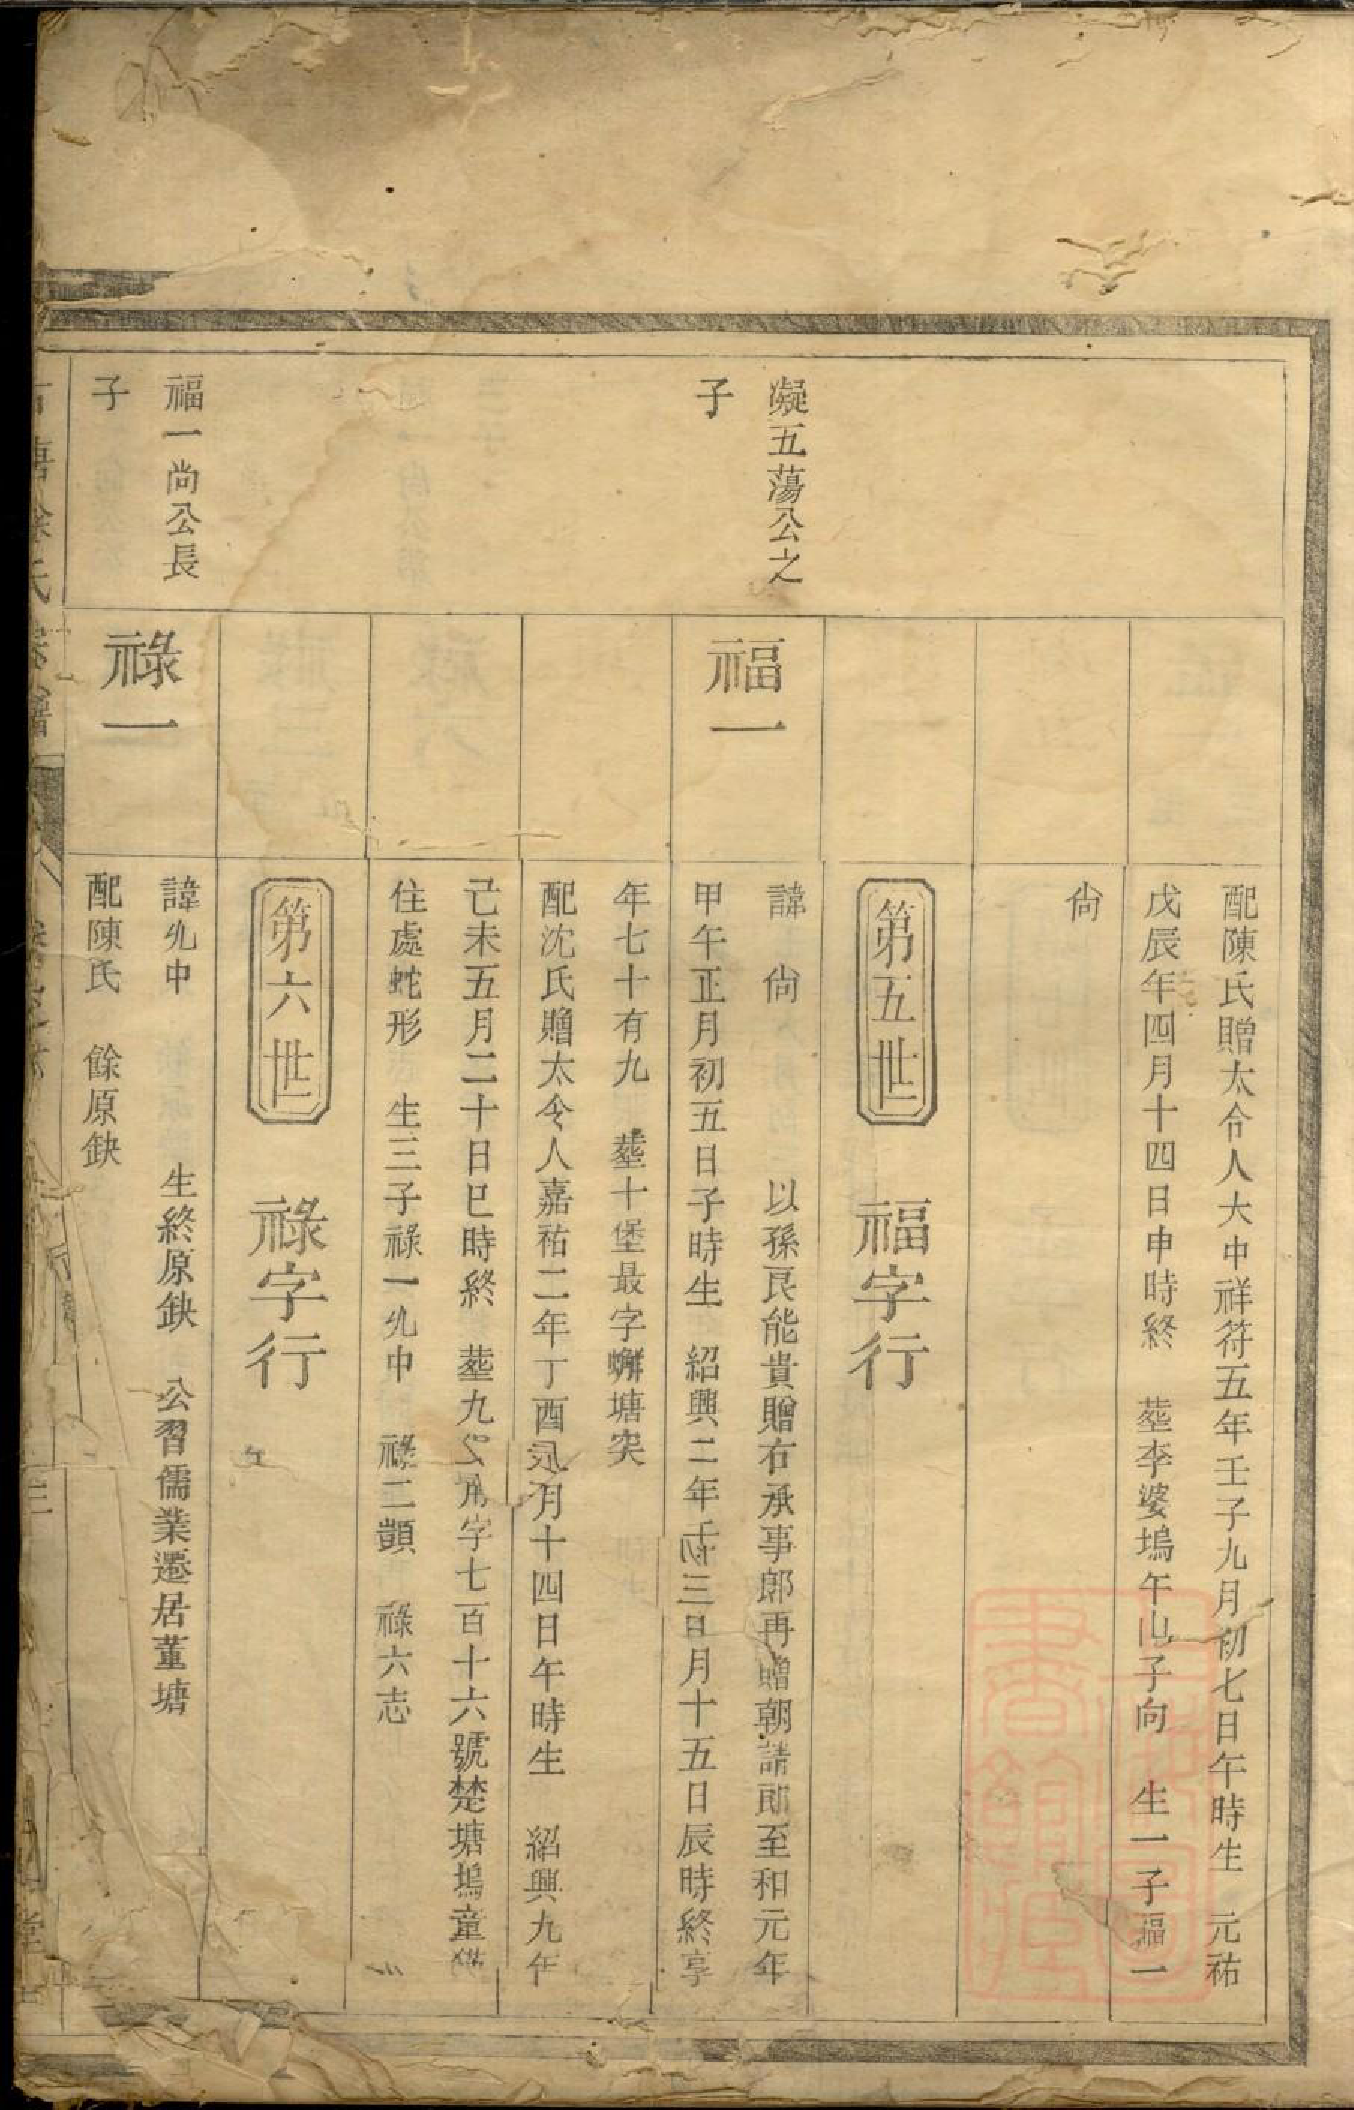 配陳氏贈太令人大中祥符五年壬子九月初七日午時生 元祐
戊辰年四月十四日申時終 塟李婆塢午山子向 生一子福一
尙
第五世 福字行
凝五蕩公之
子
福一
諱 尙 以孫民能貴贈右承事郎再贈朝請郎至和元年
甲午正月初五日子時生 紹興二年 三日月十五日辰時終享
年七十有九 塟十堡最字 塘突
配沈氏贈太令人嘉祐二年丁酉 月十四日午時生 紹興九年
己未五月二十日巳時終 塟九 字七百十六號楚塘塢童
住處蛇形 生三子祿一 中 祿二顗 祿六志
第六世 祿字行
福一尚公長
子
祿一
諱 中 生終原缺 公習儒業遷居董塘
配陳氏 餘原缺